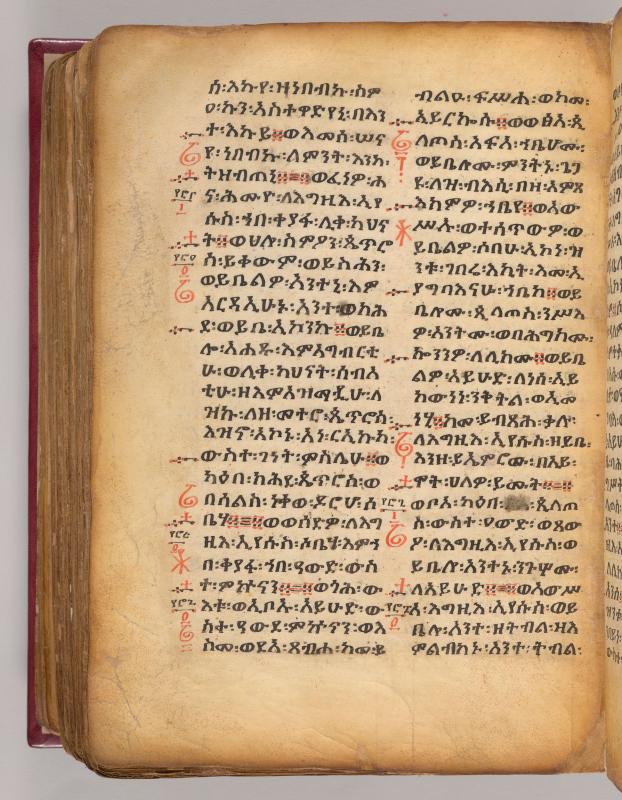 ሰ፡እኪየ፡ዘነበብኩ፡ስም
ዕ፡ኩን፡አስተዋድየኒ፡በእን
ት፡እኪይ።ወእመሰ፡ሠና
የ፡ነበብኩ፡ለምንት፡እንከ፡
ትዘብጠኒ።=።ወፈነዎ፡ሐ
ና፡ሕሙየ፡ለእግዚእ፡ኢየ
ሱስ፡ኀበ፡ቀያፋ፡ሊቀ፡ካህና
ት።ወሀሎ፡ስምዖን፡ጴጥሮ
ስ፡ይቀውም፡ወይስሕን፡
ወይቤልዎ፡አንተኒ፡እም
አርዳኢሁኑ፡አንተ፡ወክሕ
ደ፡ወይቤ፡ኢኮንኩ።ወይቤ
ሎ፡አሐዱ፡እምአግብርቲ
ሁ፡ወሊቀ፡ካህናት፡ሰብአ
ቲሁ፡ዘእምአዝማዲሁ፡ለ
ዝኩ፡ለዘ፡መተሮ፡ጴጥሮስ፡
እዝኖ፡አኮኑ፡አነ፡ርኢኩከ፡
ውስተ፡ገነት፡ምስሌሁ።ወ
ካዕበ፡ክሕደ፡ጴጥሮስ፡ወ
በሰልስ፡ነቀወ፡ዶርሆ፡ሶ
ቤሃ።=።ወወሰድዎ፡ለእግ
ዚእ፡ኢየሱስ፡ሶቤሃ፡እምኀ
በ፡ቀያፋ፡ኀበ፡ዓውድ፡ውስ
ት፡ምኵናን።=።ወጎሕ፡ው
እቱ፡ወኢቦኡ፡አይሁድ፡ው
ስተ፡ዓውደ፡ምኵናን፡ወእ
ስመ፡ወደአ፡ጸብሐ፡ከመ፡ይ
ብልዑ፡ፋሥሐ፡ወከመ፡
ኢይርኰሱ።ወወፅአ፡ጲ
ላጦስ፡አፍአ፡ኀቤሆሙ፡
ወይቤሎሙ፡ምንትኑ፡ጌጋ
ዩ፡ለዝ፡ብእሲ፡በዘ፡አምጻ
እክምዎ፡ኀቤየ።ወአው
ሥኡ፡ወተሰጥውዎ፡ወ
ይቤልዎ፡ሶበሁ፡ኢኮነ፡ዝ
ንቱ፡ገባሬ፡እኪት፡እመ፡ኢ
ያግባእናሁ፡ኀቤከ።ወይ
ቤሎሙ፡ጲላጦስ፡ንሥእ
ዎ፡አንትሙ፡ወበሕግክሙ፡
ኰንንዎ፡ለሊክሙ።ወይቤ
ልዎ፡አይሁድ፡ለነሰ፡ኢይ
ከውነነ፡ንቅትል፡ወኢመ
ነሂ።ከመ፡ይብጻሕ፡ቃሉ፡
ለእግዚእ፡ኢየሱስ፡ዘይቤ፡
እንዘ፡ይኤምሮሙ፡በአይ፡
ሞት፡ሀለዎ፡ይሙት።=።
ወቦአ፡ካዕበ፡ ጲላጦ
ስ፡ውስተ፡ዐውድ፡ወጸው
ዖ፡ለእግዚእ፡ኢየሱስ፡ወ
ይቤሎ፡አንተኑ፡ንጉሦሙ፡
ለአይሁድ።=።ወአውሥ
አ፡እግዚእ፡ኢየሱስ፡ወይ
ቤሎ፡አንተ፡ዘትብል፡ዘእ
ምልብከኑ፡አንተ፡ትብል፡